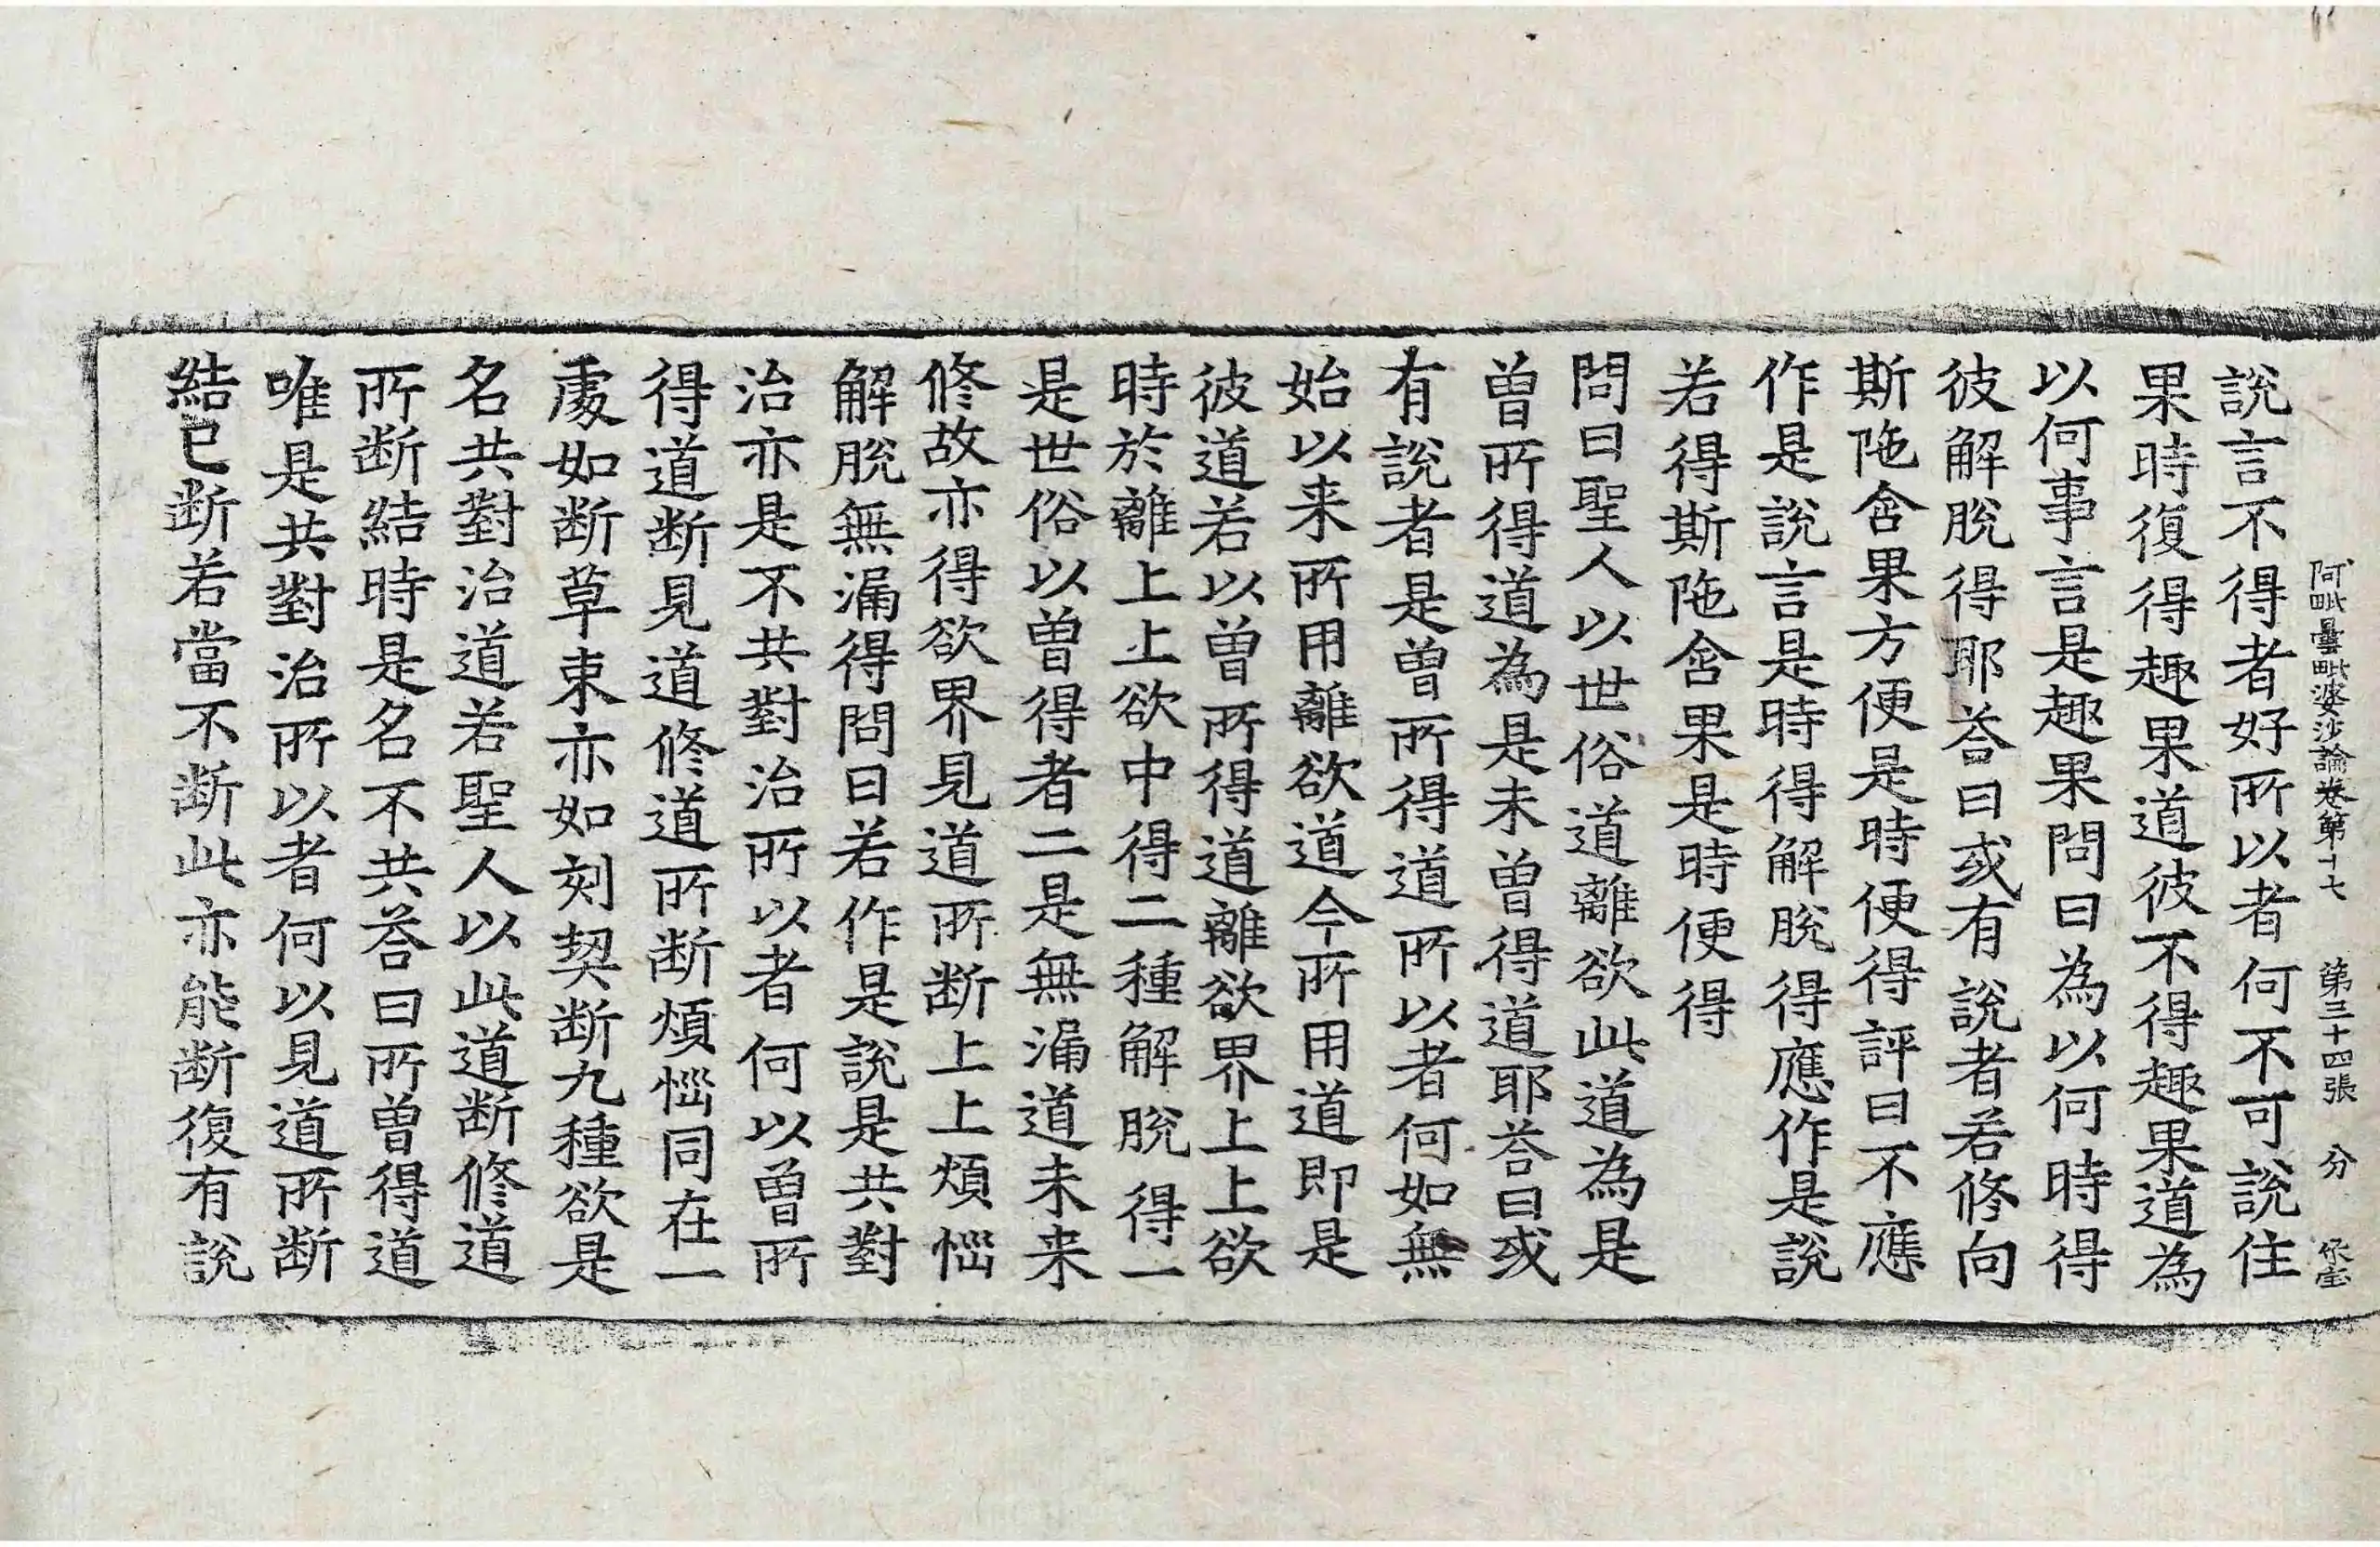 阿毗曇毗婆沙論卷第十七　第三十四張　分
說言不得者好所以者何不可說住
果時復得趣果道彼不得趣果道為
以何事言是趣果問曰為以何時得
彼解脫得耶荅曰或有說者若修向
斯陁含果方便是時便得評曰不應
作是說言是時得解脫得應作是說
若得斯陁含果是時便得
問曰聖人以世俗道離欲此道為是
曾所得道為是未曾得道耶荅曰或
有說者是曾所得道所以者何如無
始以来所用離欲道今所用道即是
彼道若以曾所得道離欲界上上欲
時於離上上欲中得二種解脫得一
是世俗以曾得者二是無漏道未来
修故亦得欲界見道所断上上煩惱
解脫無漏得問曰若作是說是共對
治亦是不共對治所以者何以曾所
得道断見道修道所断煩惱同在一
處如断草束亦如刻契断九種欲是
名共對治道若聖人以此道断修道
所断結時是名不共荅曰所曾得道
唯是共對治所以者何以見道所断
結已断若當不断此亦能断復有說